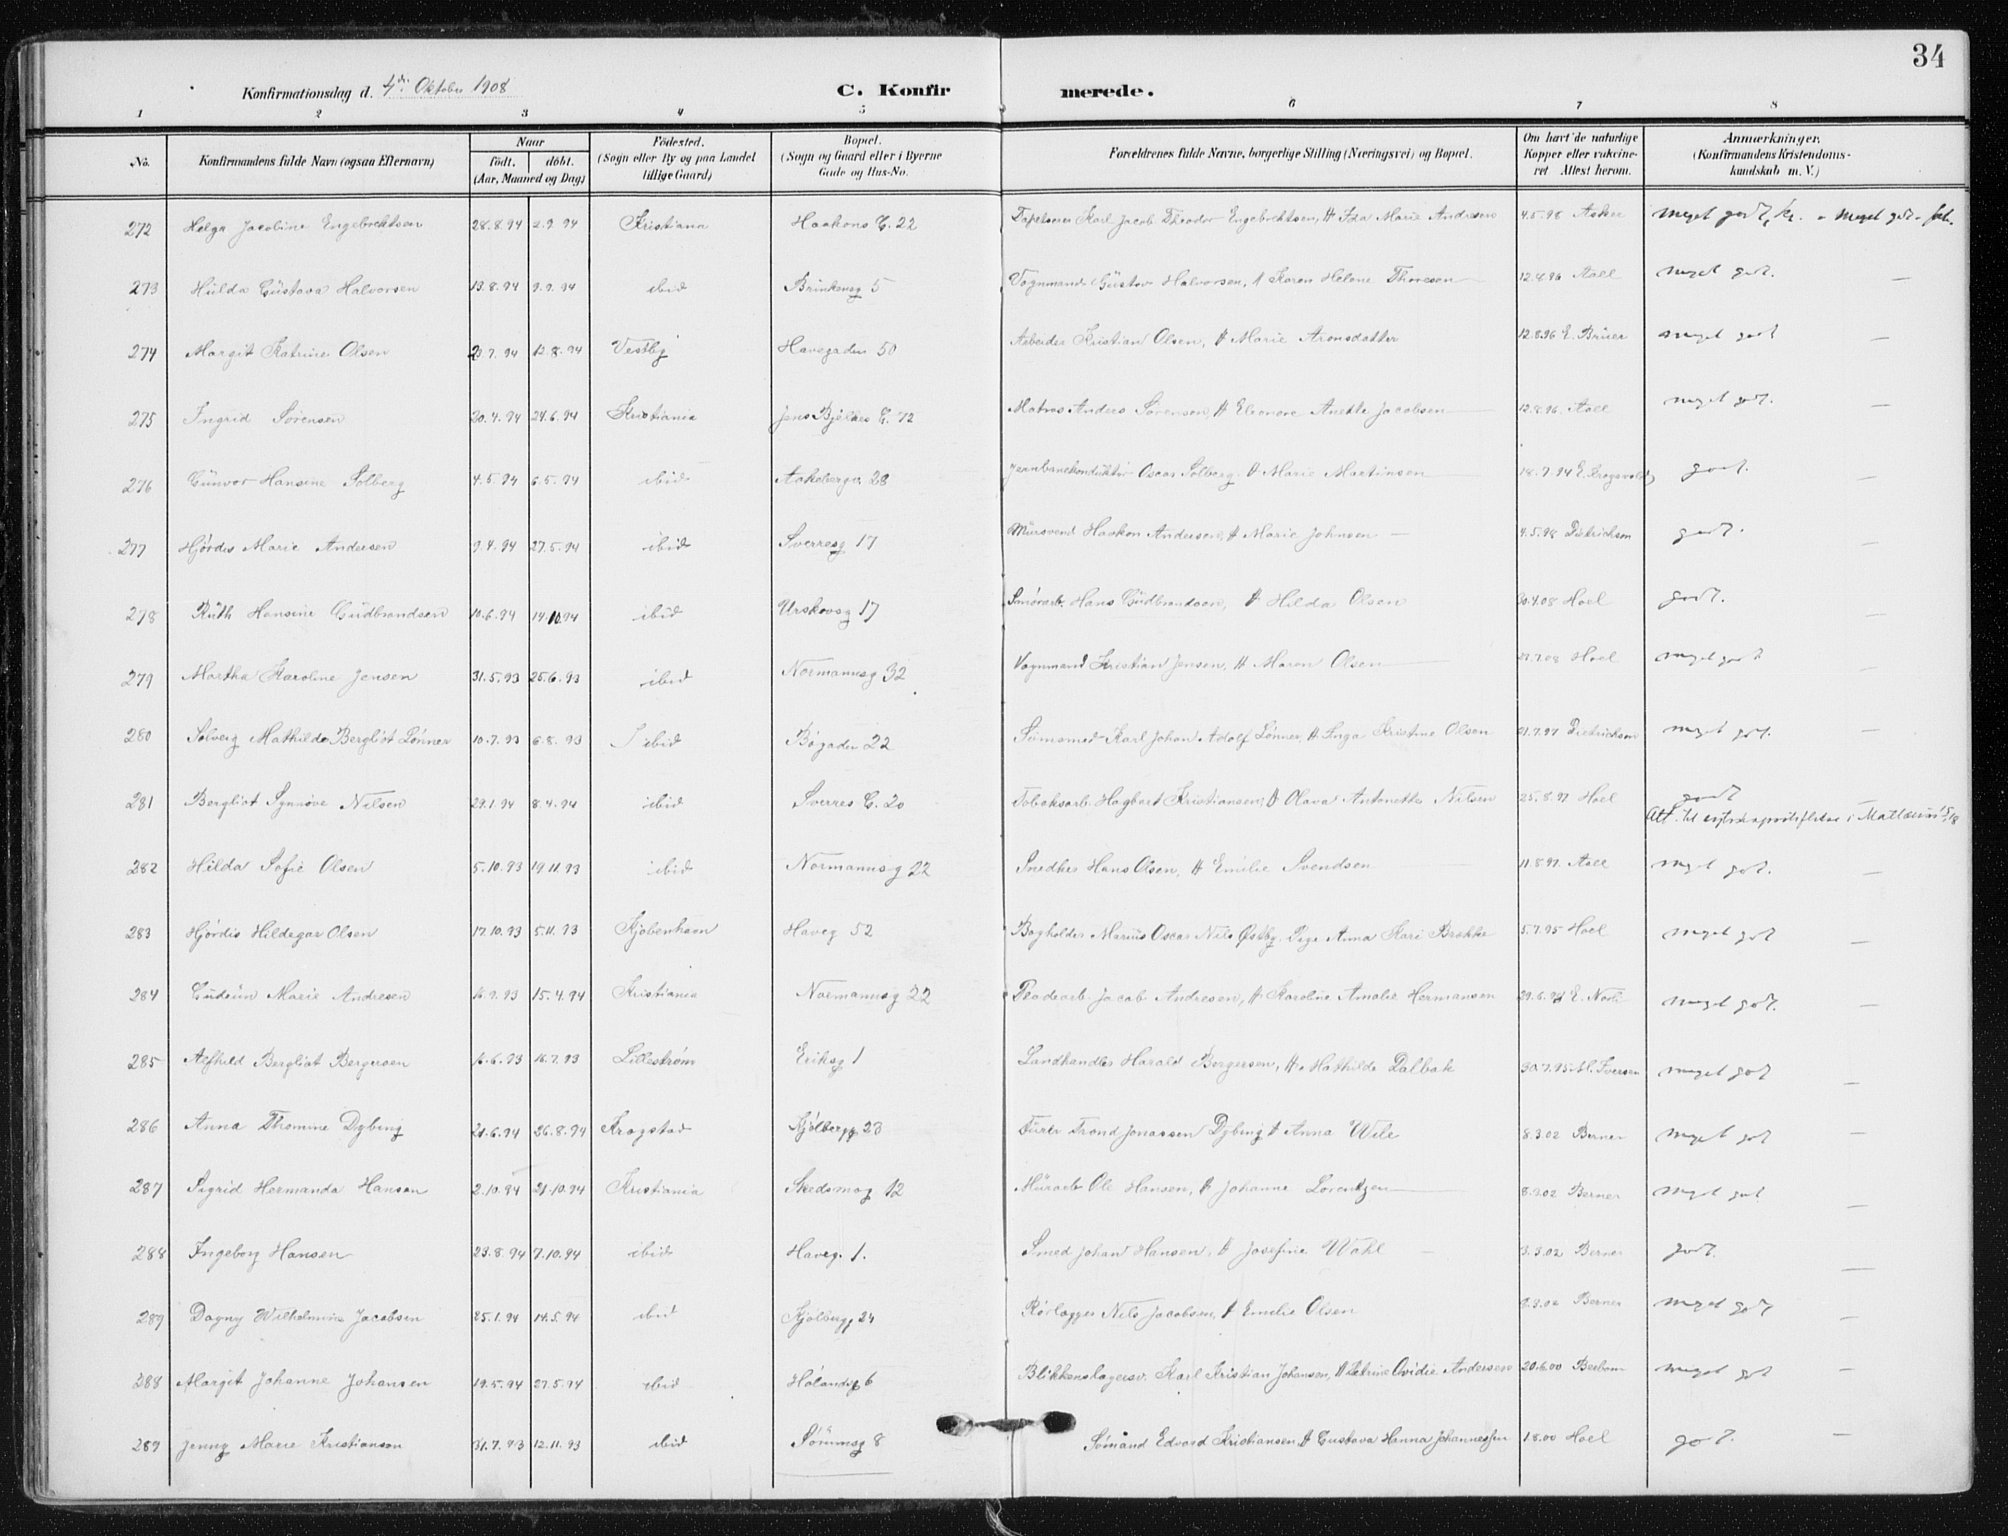 34
Konfirmationsdag d. 4de Oktober 1908 C. Konfir merede.
1 2 3 4 5 6 7 8
No. Konfirmandens fulde Navn (ogsaa Efternavn) Naar födt. döbt. (Aar, Maaned og Dag) Födested. (Sogn eller By og paa Landet tillige Gaard) Bopæl. (Sogn og Gaard eller i Byerne Gade og Hus-No. Forældrenes fulde Navne, borgerlige Stilling (Næringsvei) og Bopæl. Om havt de naturlige Kopper eller vakcineret Attest herom. Anmærkninger. (Konfirmandens Kristendomskundskab m. V.)
272 Helga Jacobine Engebrektsen 28.8.94 2.9.94 Kristiana Haakons G. 22 Tapetserer Karl Jacob Theodor Engebrektsen, & Ida Marie Andresen 4.5.98 Asker meget godt,
273 Hulda Gustava Halvorsen 13.8.94 9.9.94 ibid Brinkensg 5 Vognmand Gustav Halvorsen, & Karen Helene Thoresen 12.4.96 Aall meget got. —
274 Margit Katrine Olsen 23.7.94 12.8.94 Vestby Havegaden 50 Arbeider Kristian Olsen, & Marie Aronsdatter 12.8.96 E. Bruer meget godt —
275 Ingrid Sørensen 20.4.94 24.6.94 Kristiania Jens Bjelkes G. 12 Matros Anders Sørensen, & Eleonore Anette Jacobsen 12.8.96 Aall meget got. —
276 Gunvor Hansine Solberg 4.5.94 6.5.94 ibid Aakebergv. 28 Jernbanekonduktør Oscar Solberg, & Marie Martinsen 18.7.94 E. godt. —
277 Hjördis Marie Andersen 9.4.94 27.5.94 ibid Sverresg 17 Mursvend Haakon Andersen, & Marie Johnsen — 4.5.98 Dietrichson godt. —
278 Ruth Hansine Gudbrandsen 10.6.94 14.10.94 ibid Urskovsg 17 Smörarb. Hans Gudbrandsen, & Hilda Olsen 30.4.08 Hoel godt. —
279 Martha Karoline Jensen 31.5.93 25.6.93 ibid Normannsg 32 Vognmand Kristian Jensen, & Maren Olsen 27.7.08 Hoel meget godt —
280 Solveig Mathilde Bergliot Lönner 10.7.93 6.8.93 ibid Bøgaden 22 Karl Johan Adolf Lönner, & Inga Kristine Olsen 21.7.97 Dietrichson meget got. —
281 Bergliot Synnöve Nilsen 29.1.94 8.4.94 ibid Sverres G. 20 Tobaksarb. Hagbart Kristiansen, & Olava Antonette Nilsen 25.8.97 Hoel godt —
Att. til i Matteus 15/18
282 Hilda Sofie Olsen 5.10.93 19.11.93 ibid Normannsg 22 Snedker Hans Olsen, & Emilie Svendsen 11.8.97 Aall meget got. —
283 Hjördis Hildegar Olsen 17.10.93 5.11.93 Kjöbenhavn Haveg 52 Bogholder Marius Oscar Nils Østby. Pige Anna Kari Brække 5.7.95 Hoel meget got —
284 Gudrun Marie Andresen 16.9.93 15.4.94 Kristiania Normannsg 22 Jacob Andresen, & Karoline Amalie Hermansen 29.6.94 E. meget got. —
285 Alfhild Bergliot Bergersen 16.6.93 16.7.93 Lilleström Eriksg 1 Landhandler Harald Bergersen, & Mathilde Dalbak 30.7.95 Al. Iversen meget got —
286 Anna Thomine Dybing 21.6.94 26.8.94 Krogstad Kjölbergg 23 Trond Jonassen Dybing & Anna Wile 8.3.02 Berner meget got —
287 Sigrid Hermanda Hansen 2.10.94 21.10.94 Kristiania Skedsmog 12 Murarb Ole Hansen, & Johanne Lorentzen 8.3.02 Berner meget got —
288 Ingeborg Hansen 23.8.94 7.10.94 ibid Haveg. 1. Smed Johan Hansen, & Josefine Wahl — 3.3.02 Berner godt. —
289 Dagny Wilhelmine Jacobsen 25.1.94 14.5.94 ibid Kjölbergg 24 Rörlægger Nils Jacobsen, & Emelie Olsen 9.3.02 Berner meget got —
288 Margit Johanne Johansen 19.5.94 27.5.94 ibid Hölandsg 6 Blikkenslagersv. Karl Kristian Johansen, & Petrine Ovidie Andersen 20.6.00 meget got —
289 Jenny Marie Kristiansen 31.7.93 12.11.93 ibid Sörumsg 8 Sömand Edvard Kristiansen & Gustava Hanna Johannessen 1.8.00 Hoel got. —